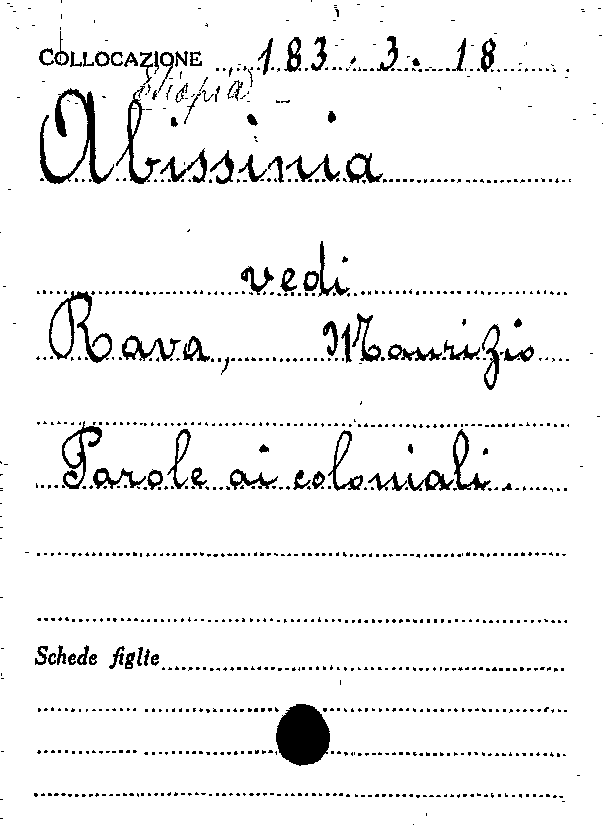 COLLOCAZIONE 183.3.18
Etiopia
Abissinia
vedi
Rava, Maurizio
Parole ai coloniali.
Schede figlie